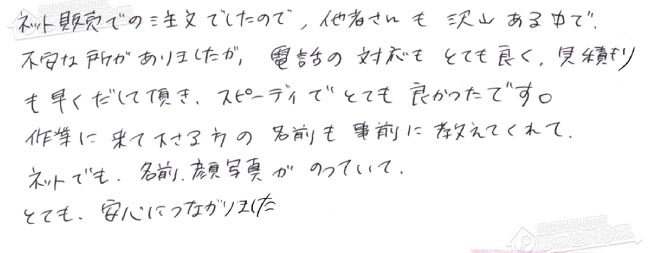 ネット販売での注文でしたので，他者さんも沢山ある中で，
不安な所がありましたが，電話の対応もとても良く，見積もり
も早くだして頂き，スピーディでとても良かったです。
作業に来て下さる方の名前も事前に教えてくれて，
ネットでも，名前，顔写真がのっていて，
とても，安心につながりました